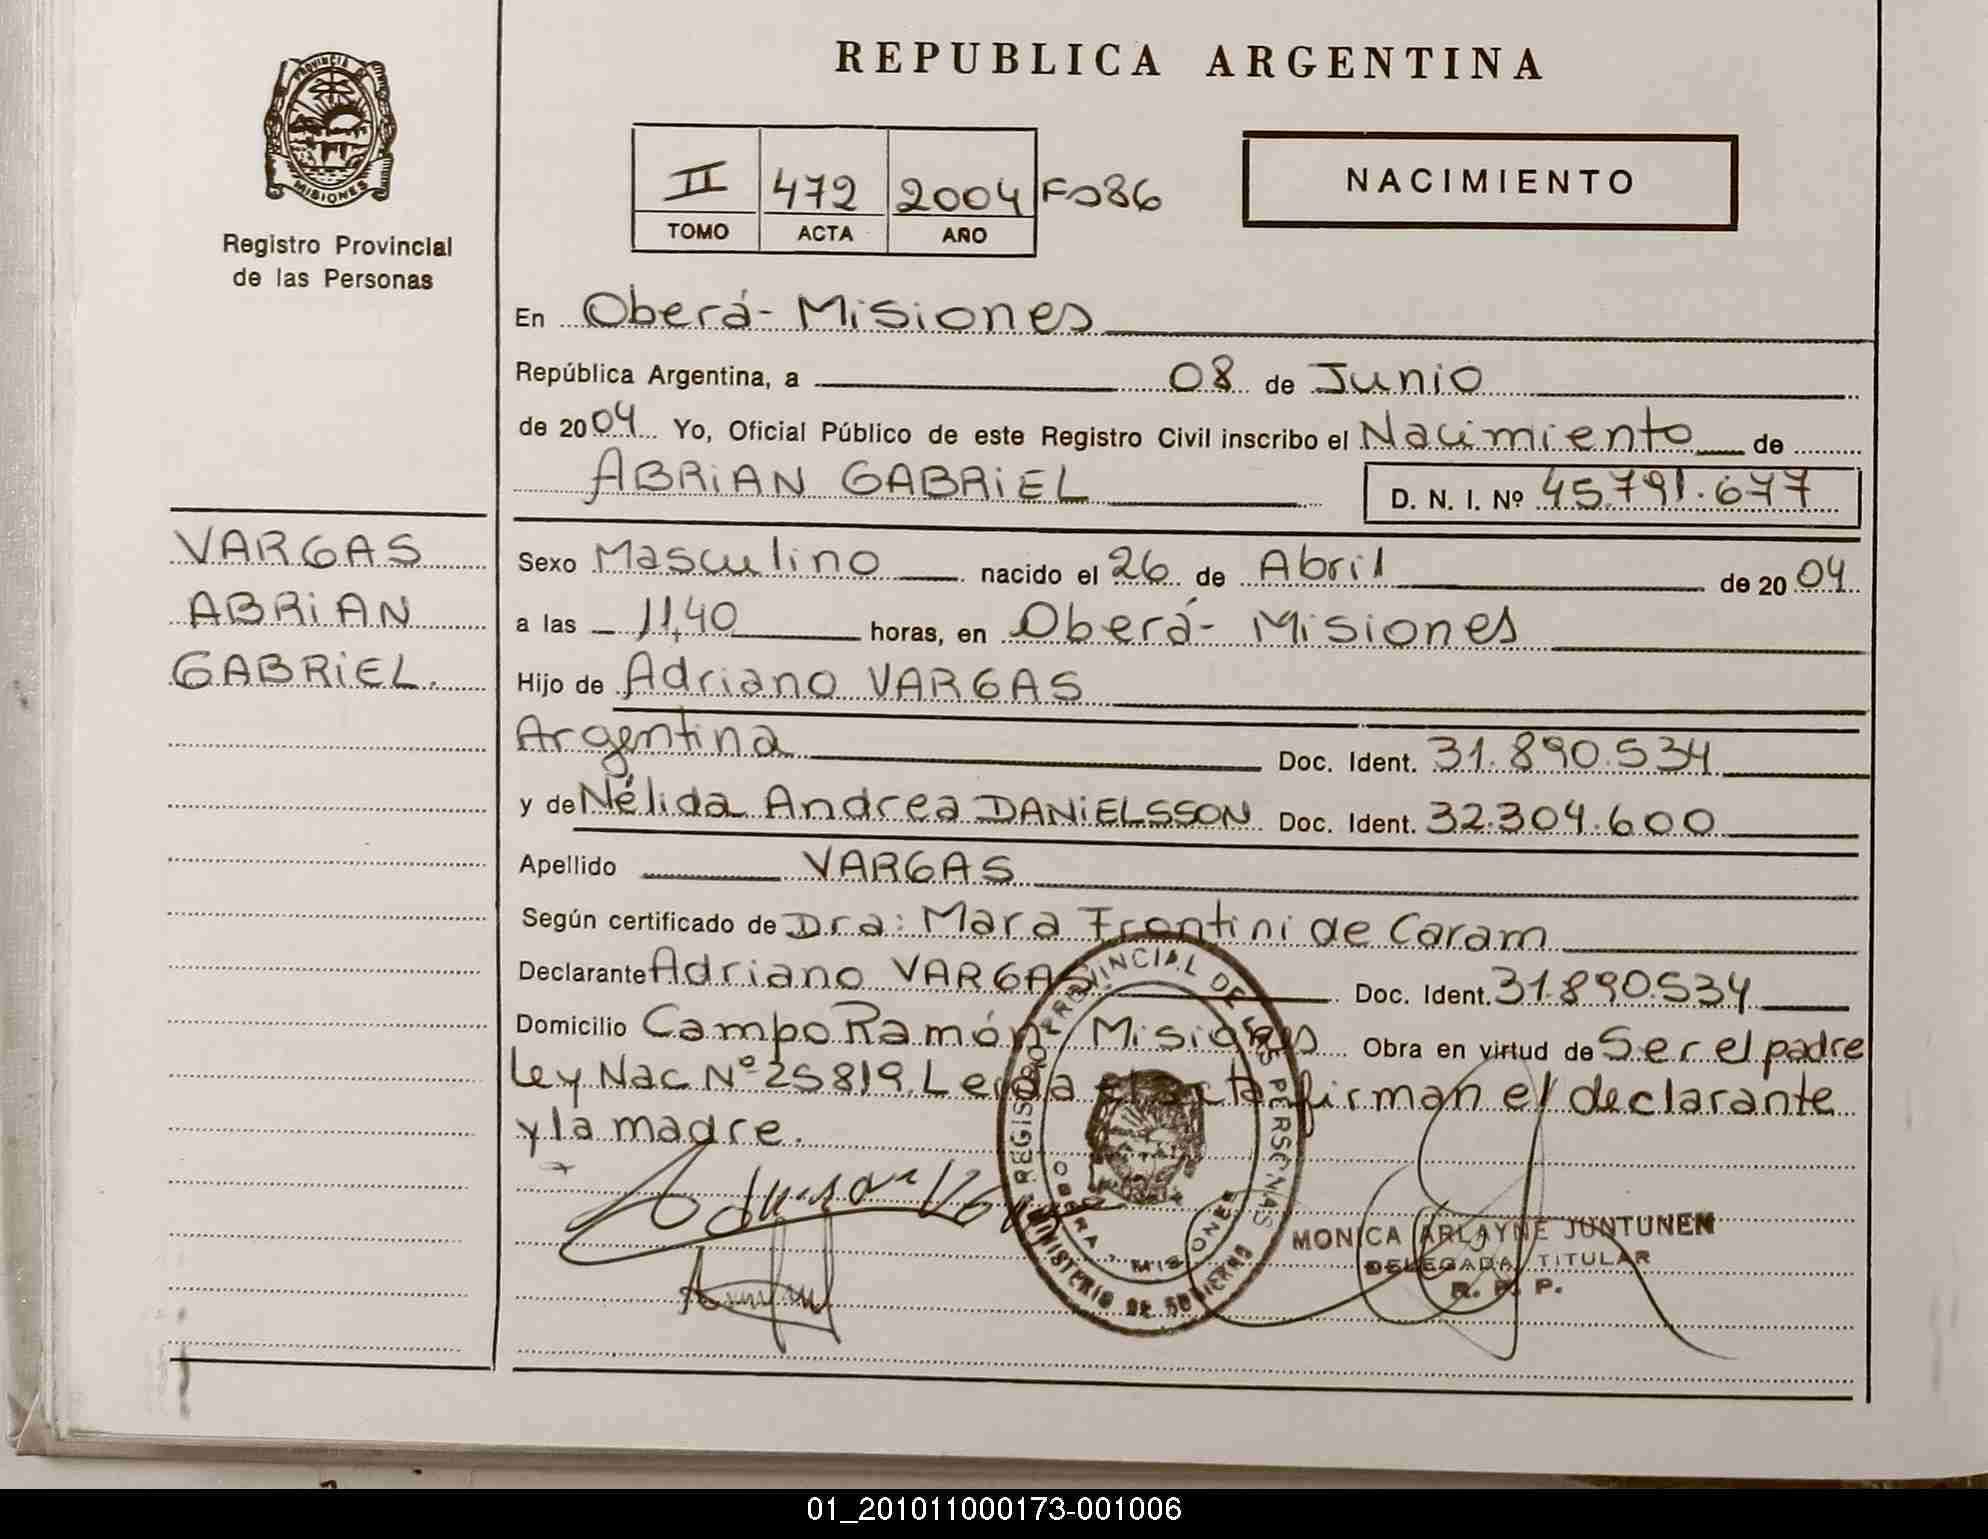 REPUBLICA ARGENTINA
PROVINCIA DE
MISIONES
Registro Provincial
de las Personas
II 472 2004 Fo86
TOMO ACTA AÑO
NACIMIENTO
En Oberá- Misiones
República Argentina, a 08 de Junio
de 2004 Yo, Oficial Público de este Registro Civil inscribo el Nacimiento de
ABRiAN GABRiEL D. N. I. Nº 45.791.677
VARGAS
ABRiAN
GABRiEL.
Sexo Masculino nacido el 26 de Abril de 2004
a las 11,40 horas, en Oberá- Misiones
Hijo de Adriano VARGAS
Argentina Doc. Ident. 31.890.534
y de Nélida Andrea DANiELSSON Doc. Ident. 32.304.600
Apellido VARGAS
Según certificado de Dra: Mara Frontini de Caram
Declarante Adriano VARGAS Doc. Ident. 31.890.534
Domicilio Campo Ramón- Misiones Obra en virtud de Ser el padre
Ley Nac Nº 25819. Leida el acta firman el declarante
y la madre.
REGISTRO PROVINCIAL DE LAS PERSONAS
OBERA - MISIONES
MINISTERIO DE GOBIERNO
MONICA ARLAYNE JUNTUNEN
DELEGADA TITULAR
R. P. P.
01_201011000173-001006